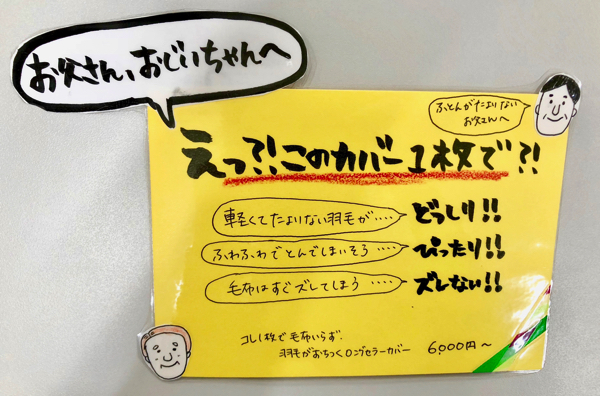 お父さん、おじいちゃんへ
ふとんがたよりない
お父さんへ
えっ?!このカバー1枚で?!
軽くてたよりない羽毛が‥‥ どっしり!!
ふわふわでとんでしまいそう‥‥ ぴったり!!
毛布はすぐズレてしまう‥‥ ズレない!!
コレ1枚で毛布いらず.
羽毛がおちつくロングセラーカバー 6,000円〜